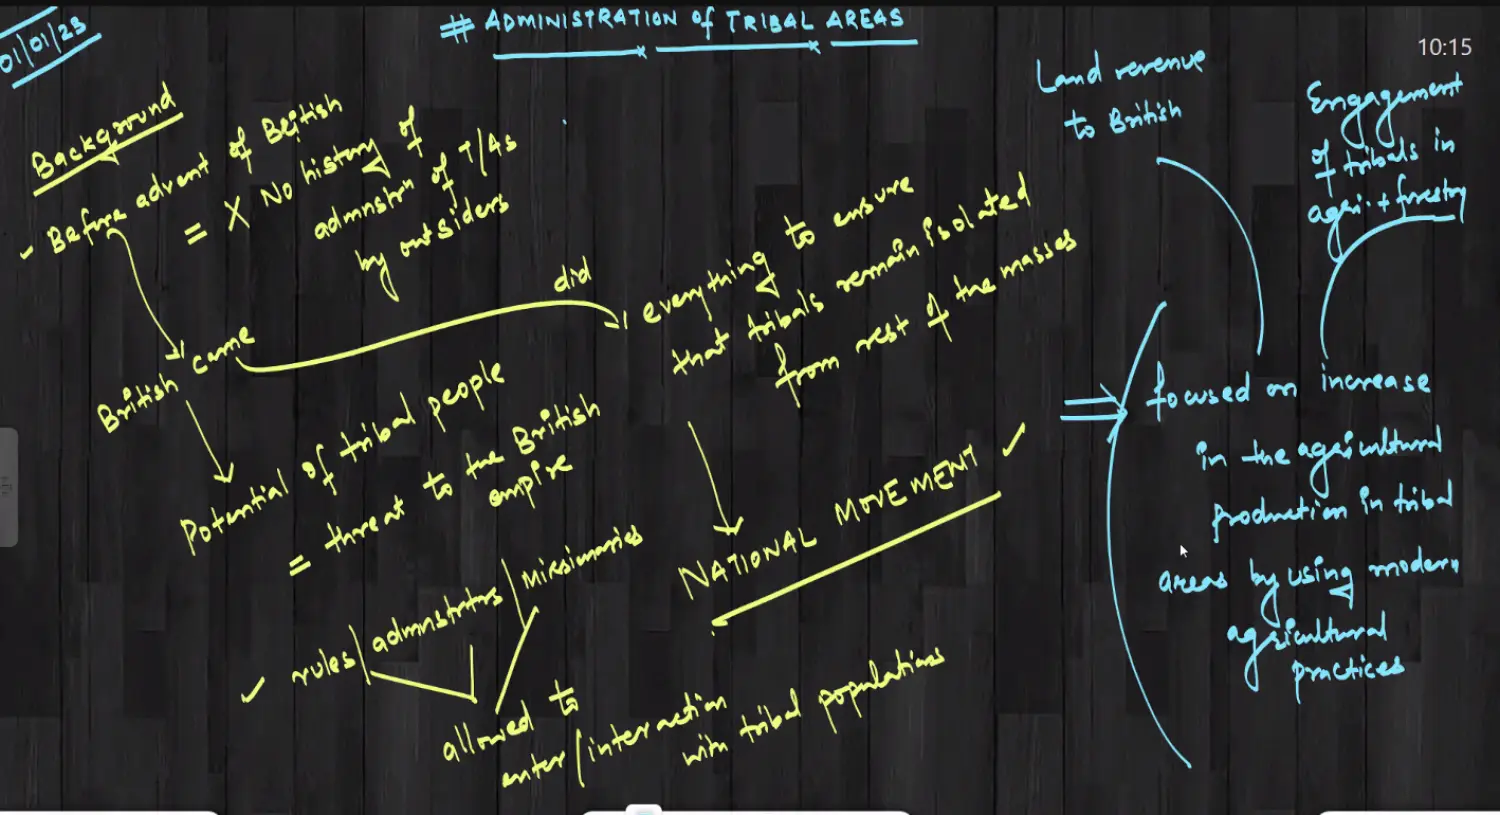 01/01/23
# ADMINISTRATION of TRIBAL AREAS
10:15
Background
Before advent of British
= X No history of
admnstrn of T/As
by outsiders
British came
did
everything to ensure
that tribals remain isolated
from rest of the masses
Potential of tribal people
= threat to the British
empire
NATIONAL MOVEMENT
rules/admnstrtrs/missionaries
allowed to
enter/interaction
with tribal populations
Land revenue
to British
Engagement
of tribals in
agri. + forestry
focused on increase
in the agricultural
production in tribal
areas by using modern
agricultural
practices